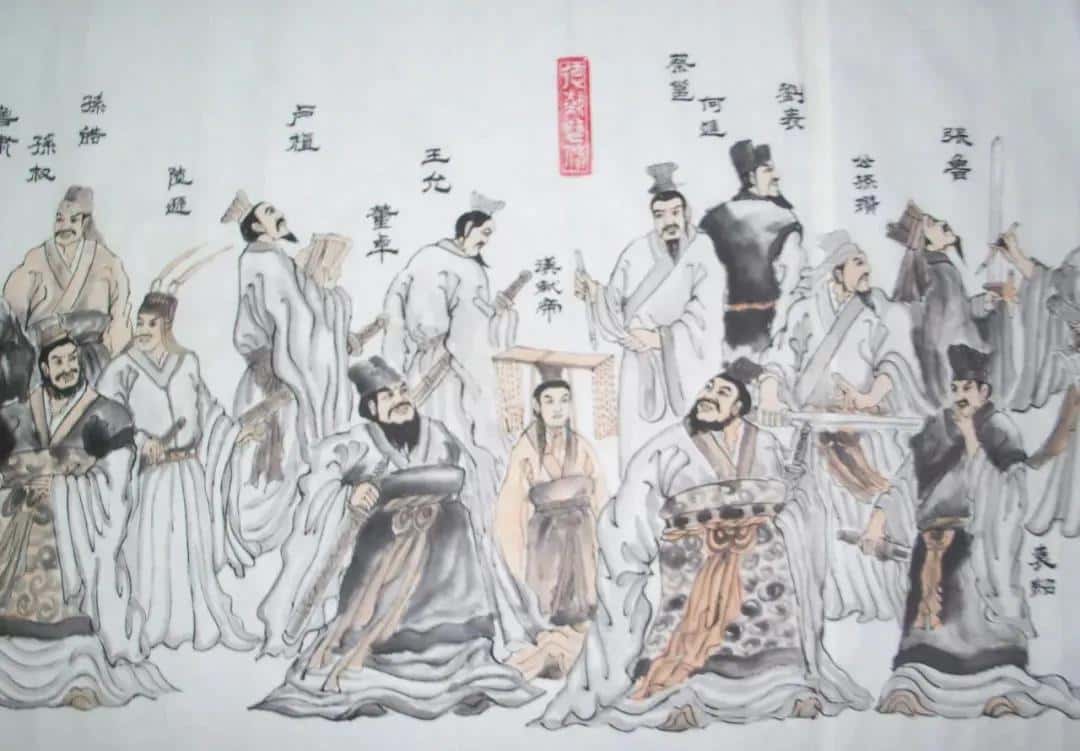 孫权
孫皓
陸遜
卢植
董卓
王允
漢献帝
蔡邕
何進
劉表
公孫瓚
張魯
袁紹